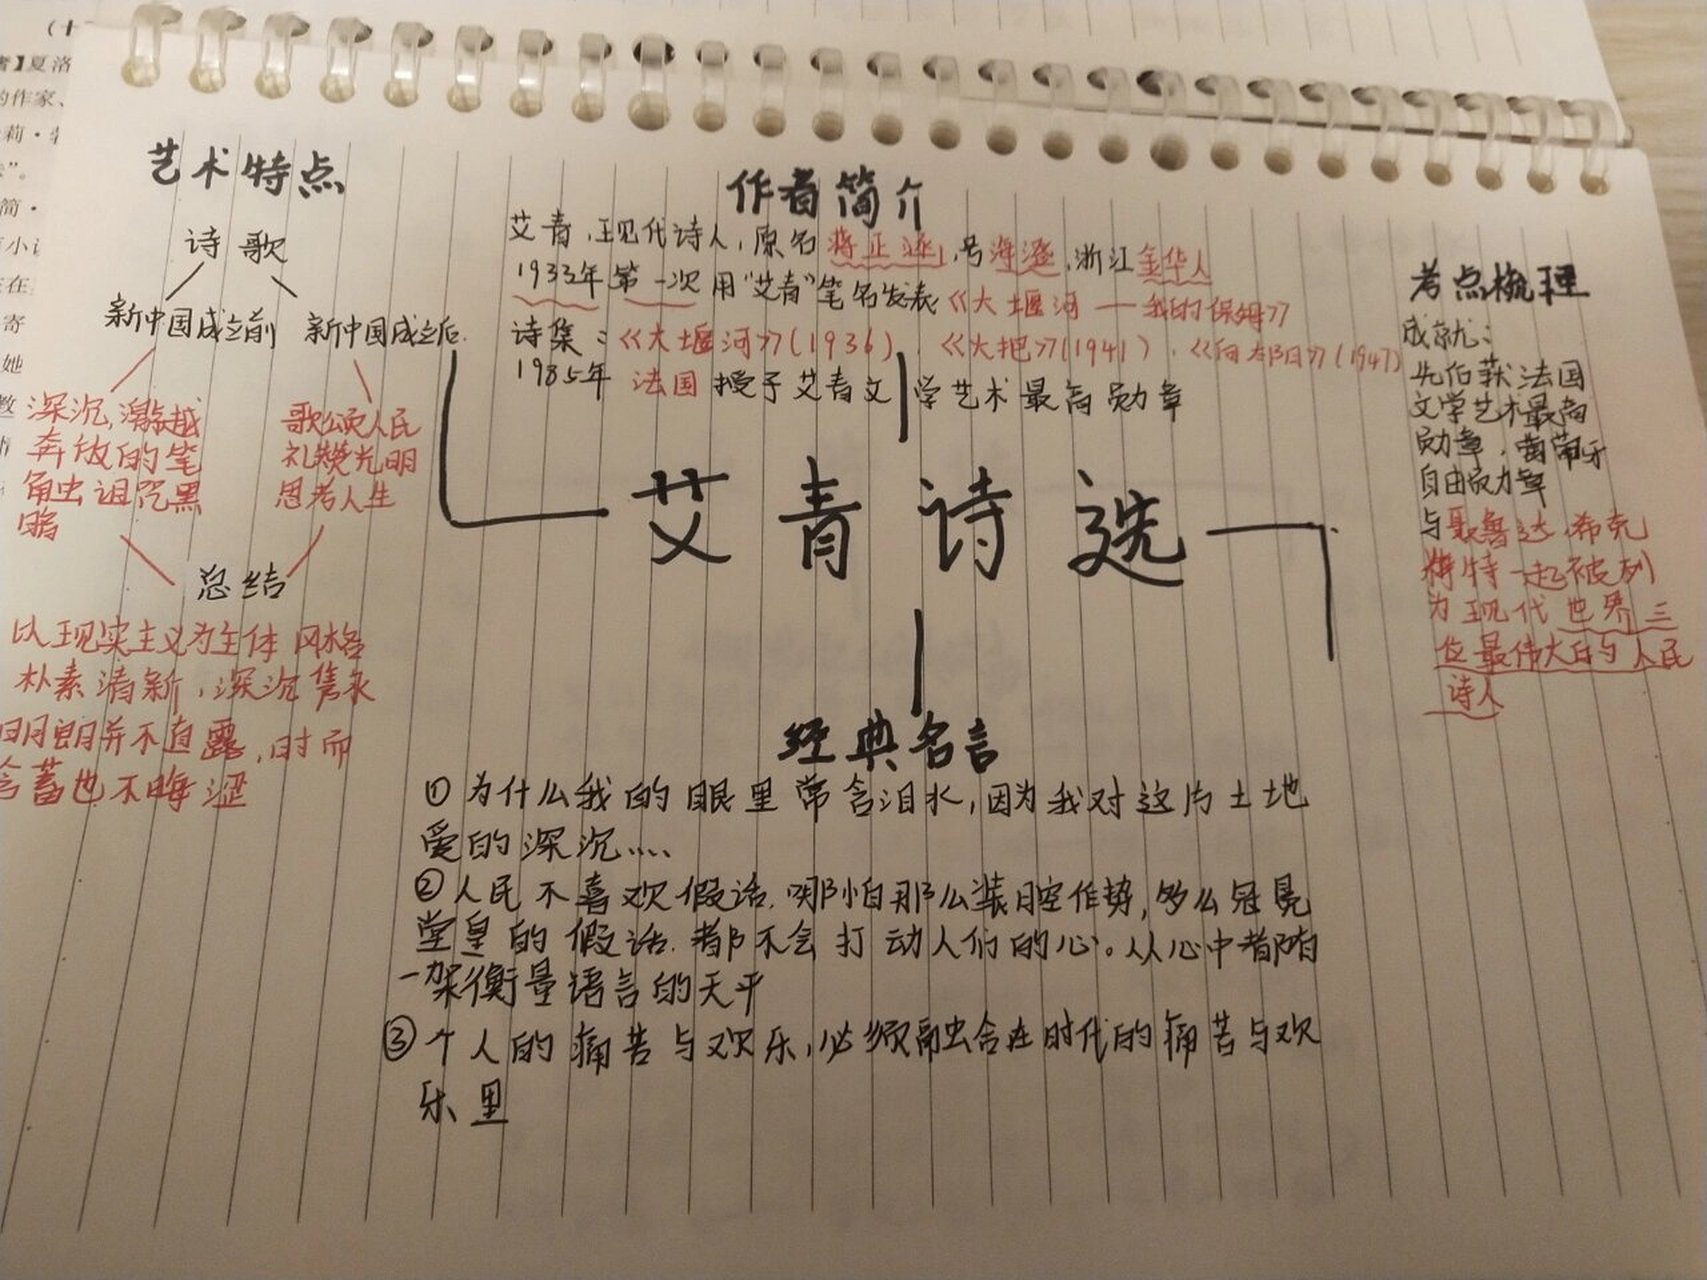 艺术特点
诗歌
新中国成立前
新中国成立后.
深沉,激越
奔放的笔
触虫诅咒黑
暗
歌颂人民
礼赞光明
思考人生
总结
以现实主义为主体 风格
朴素清新,深沉隽永
明朗并不直露,时而
含蓄也不晦涩
作者简介
艾青,现代诗人,原名蒋正涵,号海澄,浙江金华人
1933年第一次用“艾青”笔名发表《大堰河——我的保姆》
诗集:《大堰河》(1936),《火把》(1941),《向太阳》(1947)
1985年 法国授予艾青文学艺术最高勋章
艾青诗选
考点梳理
成就:
先后获法国
文学艺术最高
勋章,葡萄牙
自由勋章
与聂鲁达,希克
梅特一起被列
为现代世界三
位最伟大的人民
诗人
经典名言
①为什么我的眼里常含泪水,因为我对这片土地
爱的深沉....
②人民不喜欢假话.哪怕那么装腔作势,多么冠冕
堂皇的假话.都不会打动人们的心。从心中都有
一架衡量语言的天平
③个人的痛苦与欢乐,必须融合在时代的痛苦与欢
乐里
(十
者】夏洛
的作家、
莉·
简·
小说
在
寄
她
教